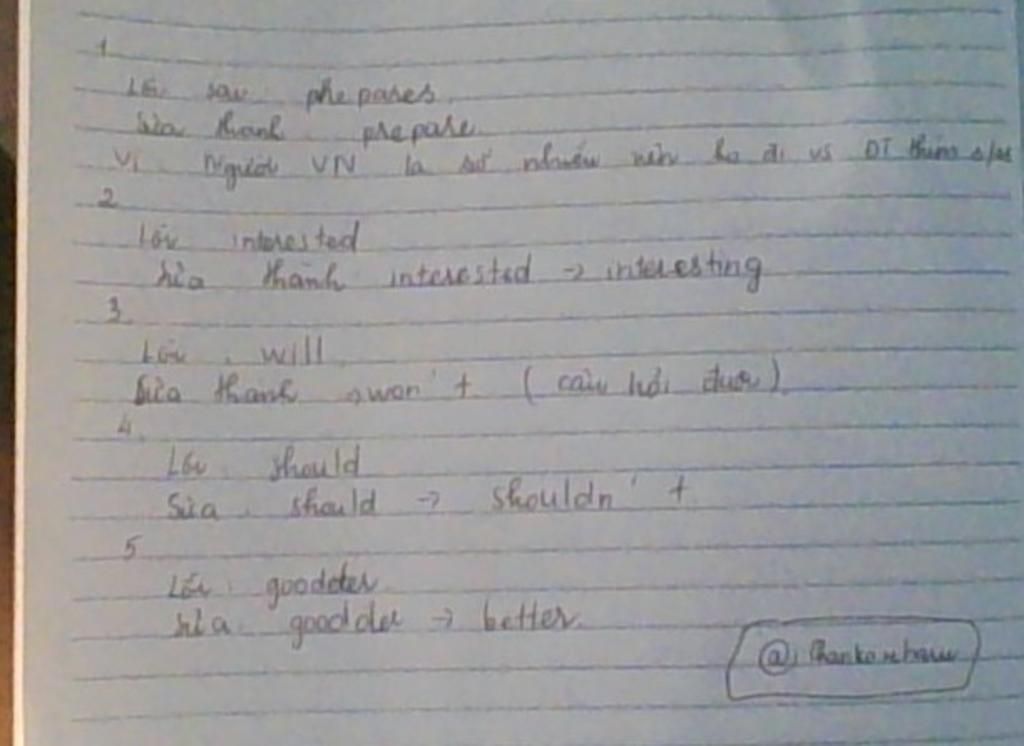 1
Lỗi sai: phepares
Sửa thành prepare
Vì Người VN là số nhiều nên ko đi vs ĐT thêm s/es
2
Lỗi interested
Sửa thành interested -> interesting
3
Lỗi: will
Sửa thành -> won't (câu hỏi đuôi)
4.
Lỗi: should
Sửa: should -> shouldn't
5
Lỗi: goodder
Sửa: goodder -> better